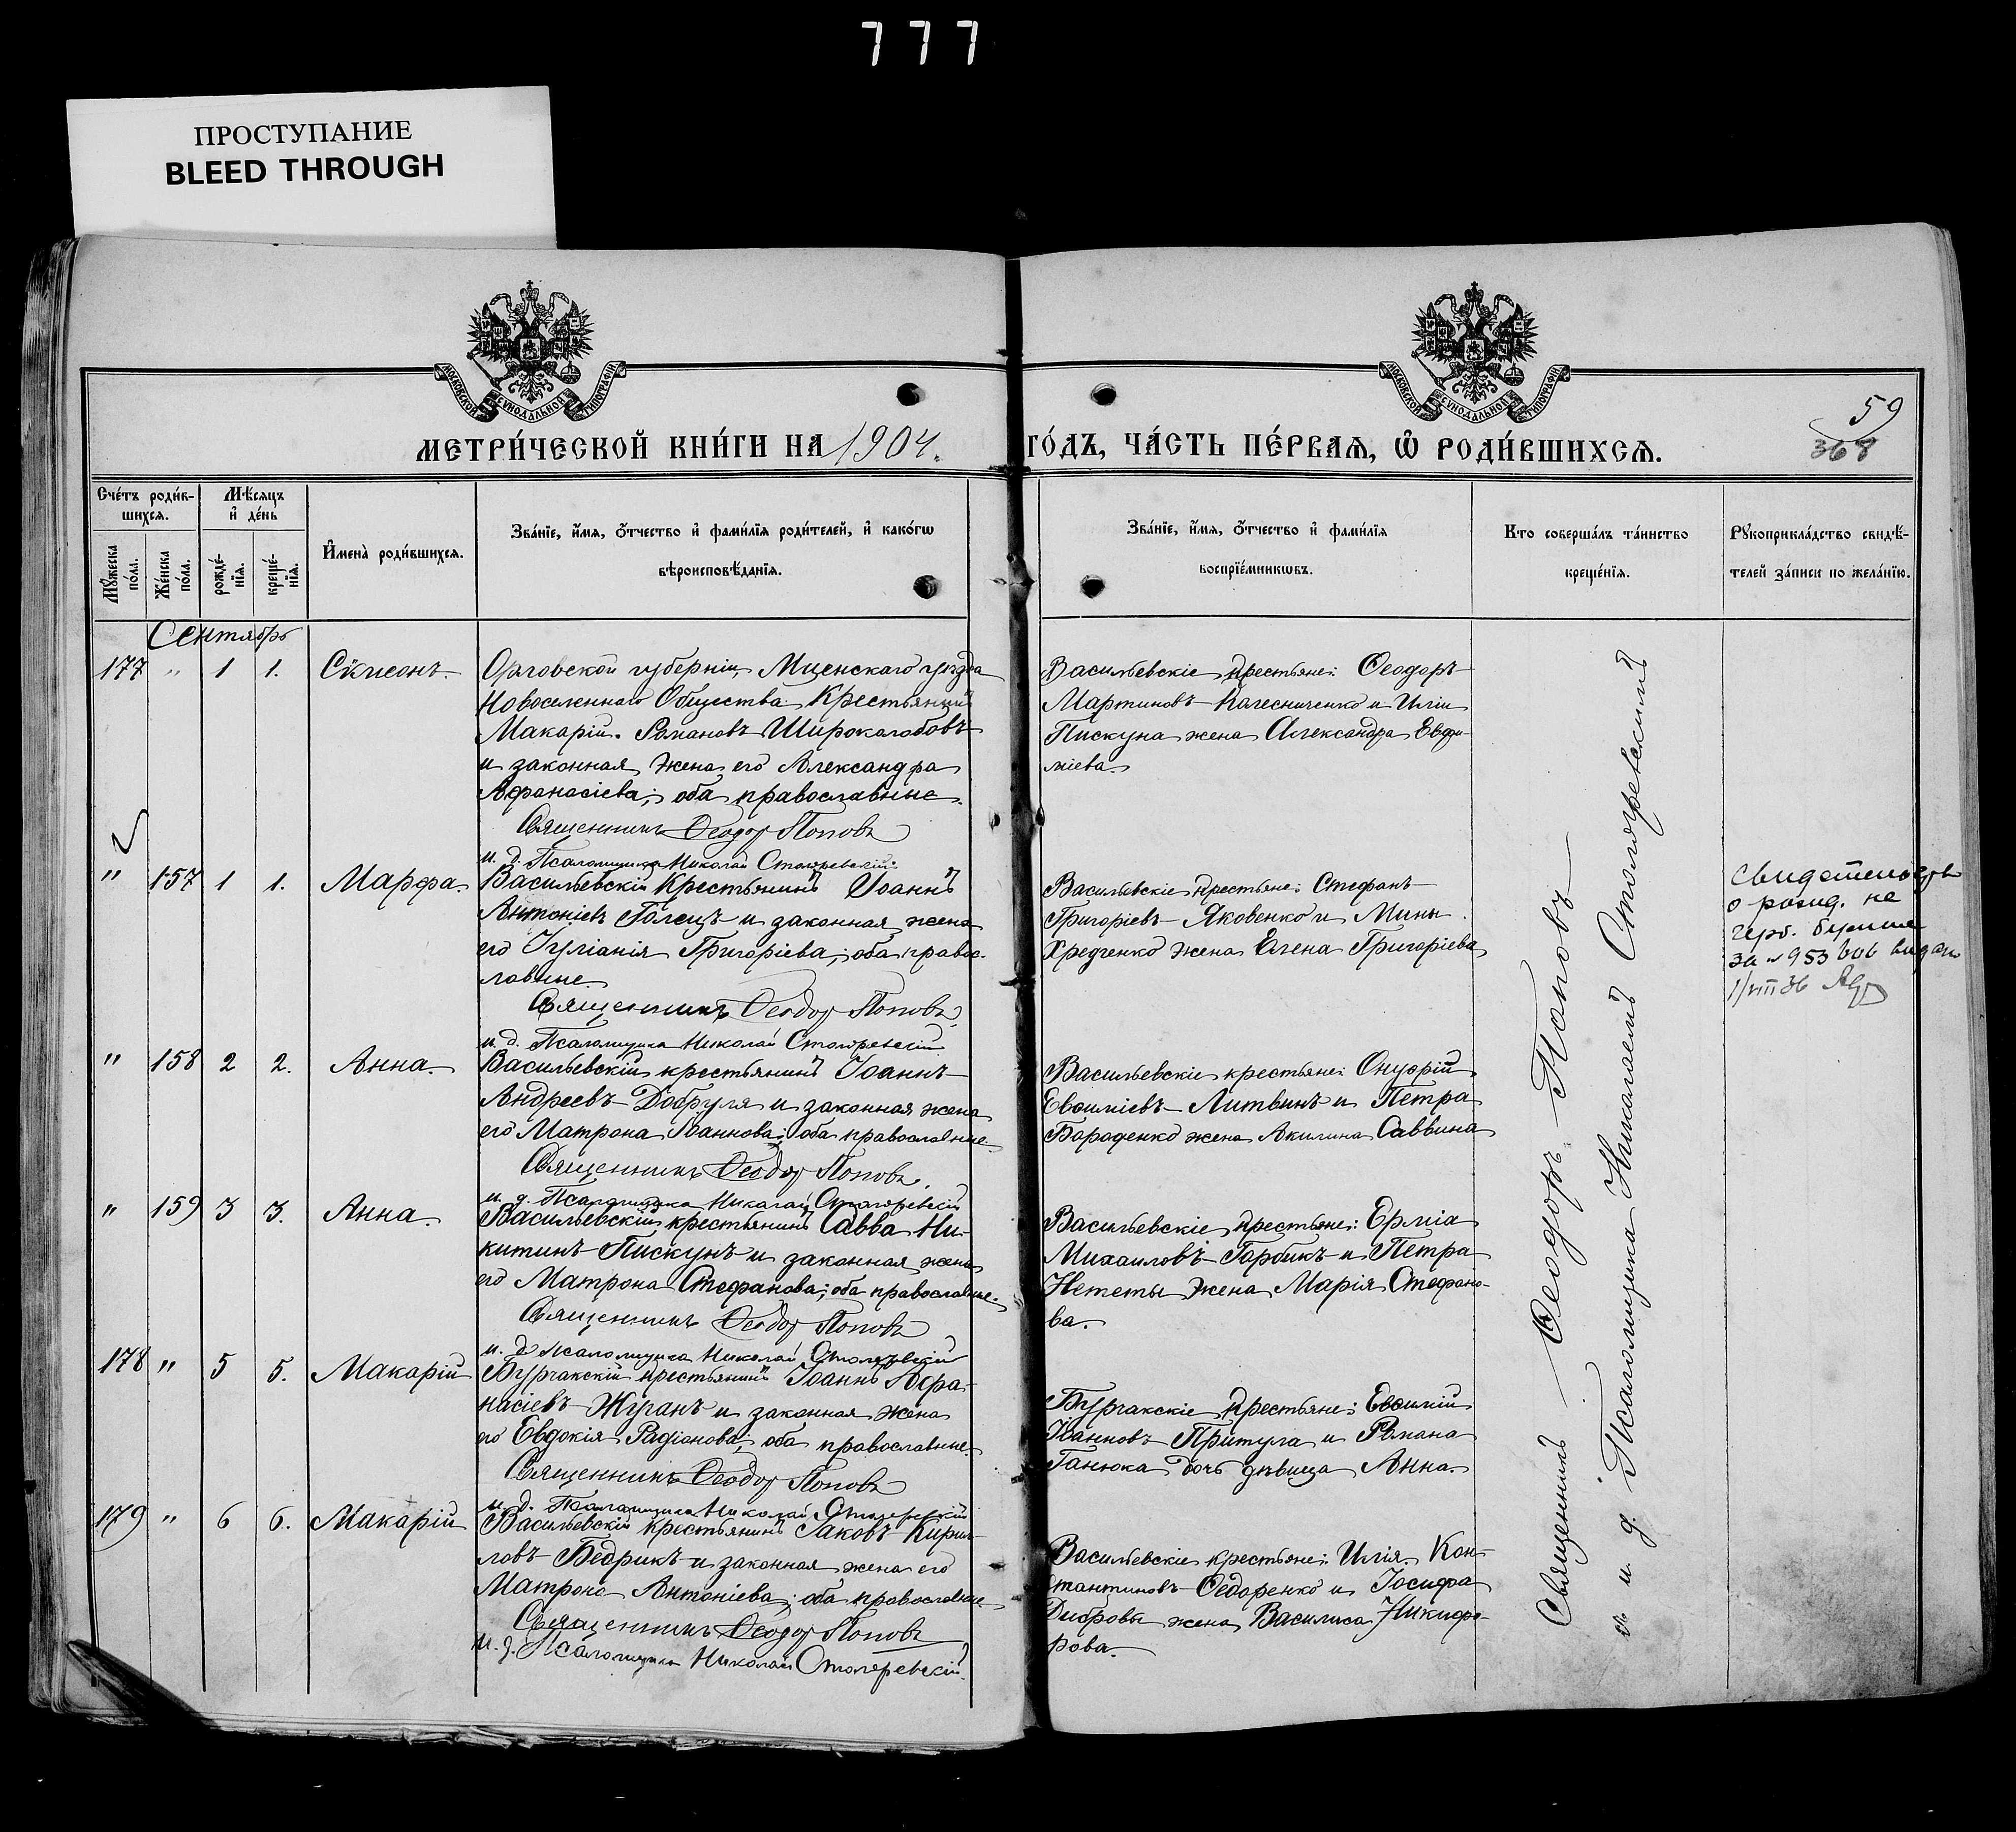 777
ПРОСТУПАНИЕ
BLEED THROUGH
МОСКОВСКОЙ СУНОДАЛЬНОЙ ТИПОГРАФІИ
МОСКОВСКОЙ СУНОДАЛЬНОЙ ТИПОГРАФІИ
59
368
МЕТРИ́ЧЕСКОЙ КНИ́ГИ НА 1904. ГО́ДЪ, ЧА́СТЬ ПЕ́РВАѦ, Ѡ РОДИ́ВШИХСѦ.
Сче́тъ роди́в-
шихсѧ.
Мꙋ́жеска по́ла.
Же́нска по́ла.
Мѣ́сѧцъ и҆ де́нь
рожде́-
нїѧ.
креще́-
нїѧ.
И҆мена̀ роди́вшихсѧ.
Зва́нїе, и҆́мѧ, ѻ҆́тчество и҆ фами́лїѧ роди́телей, и҆ како́гѡ
вѣроисповѣ́данїѧ.
Зва́нїе, и҆́мѧ, ѻ҆́тчество и҆ фами́лїѧ
воспрїе́мникѡвъ.
Кто соверша́лъ та́инство
креще́нїѧ.
Рꙋкоприкла́дство свидѣ́-
телей за́писи по жела́нїю.
Сентябрь
177 " 1 1.
Орловской губерніи, Мценскаго уѣзда
Новоселеннаго Общества Крестьянинъ
Макарій Романовъ Широколобовъ
и законная жена его Александра
Афанасіева; оба православные.
Священникъ Ѳеодоръ Поповъ
и. д. Псаломщика Николай Столяревскій
Васильевскіе крестьяне: Ѳеодоръ
Мартиновъ Калесниченко и Иліи
Пискуна жена Александра Евфи-
міева.
" 157 1 1. Марфа.
Васильевскій Крестьянинъ Іоаннъ
Антоніевъ Голецъ и законная жена
его Іуліанія Григоріева; оба правос-
лавные.
Священникъ Ѳеодоръ Поповъ
и. д. Псаломщика Николай Столяревскій
Васильевскіе крестьяне: Стефанъ
Григоріевъ Яковенко и Мины
жена Елена Григоріева
Свидетельство
о рожд. на
герб. бумаге
за № 953 выдано
" 158 2 2. Анна.
Васильевскій крестьянинъ Іоаннъ
Андреевъ Добруля и законная жена
его Матрона Іоаннова; оба православные.
Священникъ Ѳеодоръ Поповъ.
и. д. Псаломщика Николай Столяревскій
Васильевскіе крестьяне: Онуфрій
Евѳиміевъ Литвинъ и Петра
Бороденко жена Акилина Саввина
" 159 3 3. Анна.
Васильевскій крестьянинъ Савва Ни-
китинъ Пискунъ и законная жена
его Матрона Стефанова; оба православные.
Священникъ Ѳеодоръ Поповъ
и. д. Псаломщика Николай Столяревскій
Васильевскіе крестьяне: Ермія
Михаиловъ Горбикъ и Петра
Нететы жена Марія Стефано-
ва.
178 " 5 5. Макарій
Бурчакскій крестьянинъ Іоаннъ Афа-
насіевъ Журанъ и законная жена
его Евдокія Радіонова; оба православные.
Священникъ Ѳеодоръ Поповъ
и. д. Псаломщика Николай Столяревскій
Бурчакскіе крестьяне: Евѳимій
Іоанновъ Притула и Романа
Ганюка дочь дѣвица Анна.
179 " 6 6. Макарій
Васильевскій крестьянинъ Іаковъ Кирил-
ловъ Бедрикъ и законная жена его
Матрона Антоніева; оба православные.
Священникъ Ѳеодоръ Поповъ
и. д. Псаломщика Николай Столяревскій
Васильевскіе крестьяне: Илія Кон-
стантиновъ Ѳедоренко и Іосифа
Дибровы жена Василиса Никифо-
рова.
Священникъ Ѳеодоръ Поповъ
и. д. Псаломщика Николай Столяревскій